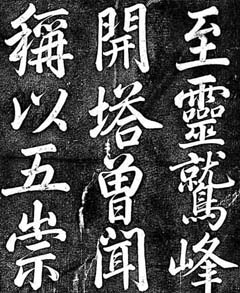 至靈鷲峰
開塔曾聞
稱以五崇